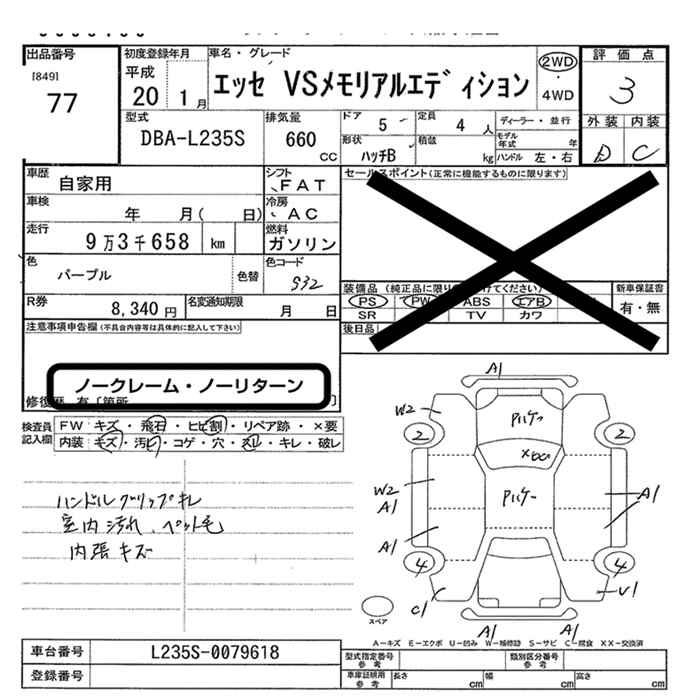 出品番号
[849]
77
初度登録年月
平成
20 1月
車名・グレード
エッセ VSメモリアルエディション
2WD
・
4WD
評価点
3
外装 内装
D C
型式
DBA-L235S
排気量
660
CC
ドア
5
定員
4 人
ディーラー・並行
モデル年式 年
形状
ハッチB
積載
kg
ハンドル 左・右
車歴
自家用
シフト
FAT
車検
年 月( 日)
冷房
AC
走行
9万3千658 km
燃料
ガソリン
色
パープル
色替
色コード
S32
R券
8,340 円
名変通知期限
月 日
セールスポイント(正常に機能するものに限ります)
装備品(純正品に限り
けてください)
PS PW ABS エアB
SR TV カワ
新車保証書
有・無
後日品
注意事項申告欄(不具合内容等は具体的に記入して下さい)
ノークレーム・ノーリターン
修復歴 有[箇所 ]
検査員
記入欄
FW キズ・飛石・ヒビ割・リペア跡・×要
内装 キズ・汚れ・コゲ・穴・スレ・キレ・破レ
ハンドルグリップキレ
室内汚れ、ペット毛
内張キズ
A1
W2
2
2
Pハゲー
W2
A1
Pハゲー
A1
A1
4
4
C1
U1
A1
A1
スペア
A−キズ E−エクボ U−凹み W−補修跡 S−サビ C−腐食 XX−交換済
車台番号
L235S-0079618
登録番号
型式指定番号
参考
類別区分番号
参考
車庫証明用
参考
長さ cm
幅 cm
高さ cm